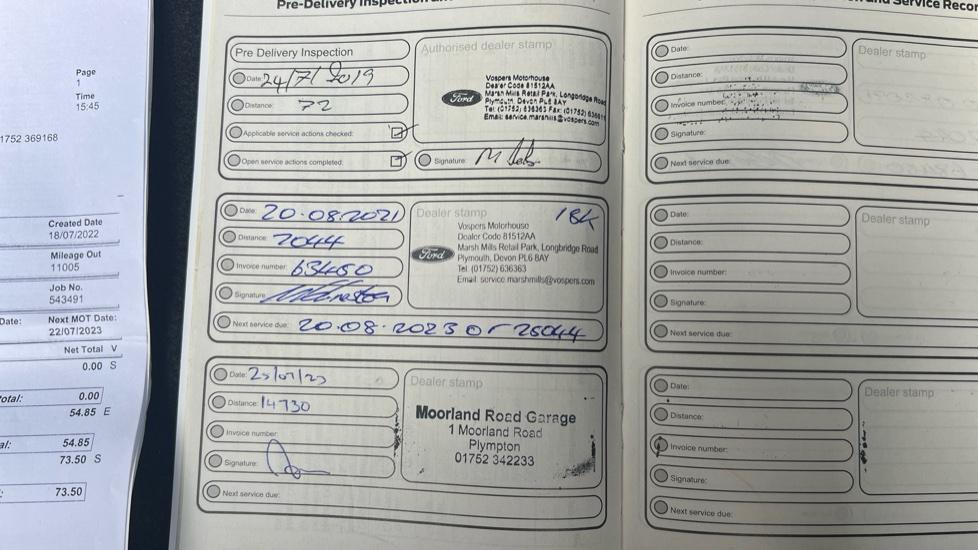 Page
1
Time
15:45
1752 369168
Created Date
18/07/2022
Mileage Out
11005
Job No.
543491
Date: Next MOT Date:
22/07/2023
Net Total V
0.00 S
otal: 0.00
54.85 E
al: 54.85
73.50 S
73.50
Pre-Delivery Inspection
Pre Delivery Inspection
Date: 24/7/2019
Distance: 72
Applicable service actions checked:
Open service actions completed:
Authorised dealer stamp
Ford
Vospers Motorhouse
Dealer Code 81512AA
Marsh Mills Retail Park, Longbridge Road
Plymouth, Devon PL6 8AY
Tel: (01752) 636363 Fax: (01752)
Email: service.marshmills@vospers.com
Signature:
Date: 20.08.2021
Distance: 7044
Invoice number: 634450
Signature:
Next service due: 20.08.2023 or 25044
Dealer stamp
18K
Ford
Vospers Motorhouse
Dealer Code 81512AA
Marsh Mills Retail Park, Longbridge Road
Plymouth, Devon PL6 8AY
Tel: (01752) 636363
Email: service.marshmills@vospers.com
Date:
Distance: 14730
Invoice number:
Signature:
Next service due:
Dealer stamp
Moorland Road Garage
1 Moorland Road
Plympton
01752 342233
and Service Recor
Date:
Distance:
Invoice number:
Signature:
Next service due:
Dealer stamp
Date:
Distance:
Invoice number:
Signature:
Next service due:
Dealer stamp
Date:
Distance:
Invoice number:
Signature:
Next service due:
Dealer stamp